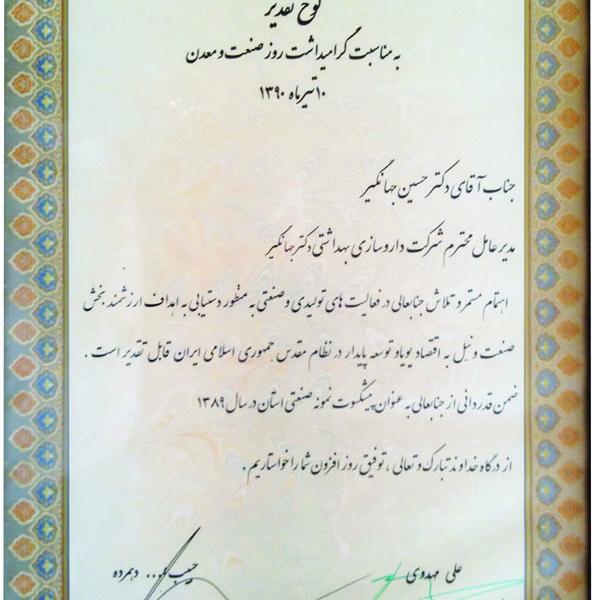 لوح تقدیر
به مناسبت گرامیداشت روز صنعت و معدن
۱۰ تیر ماه ۱۳۹۰
جناب آقای دکتر حسین جهانگیر
مدیر عامل محترم شرکت داروسازی بهداشتی دکتر جهانگیر
اهتمام مستمر و تلاش جنابعالی در فعالیت های تولیدی و صنعتی به منظور دستیابی به اهداف ارزشمند بخش
صنعت و نیل به اقتصاد پویا و توسعه پایدار در نظام مقدس جمهوری اسلامی ایران قابل تقدیر است .
ضمن قدردانی از جنابعالی به عنوان پیشکسوت نمونه صنعتی استان در سال ۱۳۸۹
از درگاه خداوند تبارک و تعالی ، توفیق روز افزون شما را خواستاریم .
علی مهدوی
حبیب ... دهمرده